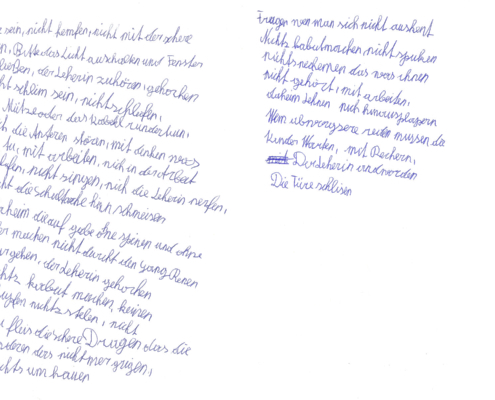 sein, nicht kempfen, nicht mit der schere
Bitte das Licht auschalten und Fenster
ließen, der Leherin zuhören, gehorchen
ht schlem sein, nicht schlufen,
Mütze oder das kabel runder tun,
ch die Anderen stören, mit denken was
tu, mit arbeiten, nich in der Arbeit
lafen, nicht singen, nich die Leherin nerfen,
ht die schultasche hin schmeisen
rheim die auf gabe one spinen und ohne
er machen nicht durch den gang Renen
gehen, der Leherin gehorchen
chts kabut machen, keinen
nichts stelen, nicht
flus die schere Dragen das die
das nicht mer grigen,
chts um hauen
Fragen wen man sich nicht auskent
Nichts kabutmachen, nicht spuken
nichts nehemen das was ihnen
nicht gehört, mit arbeiten,
nich hinausplapern
Wen
kinder Warten, mit Rechern,
Der Leherin
Die Türe schlisen